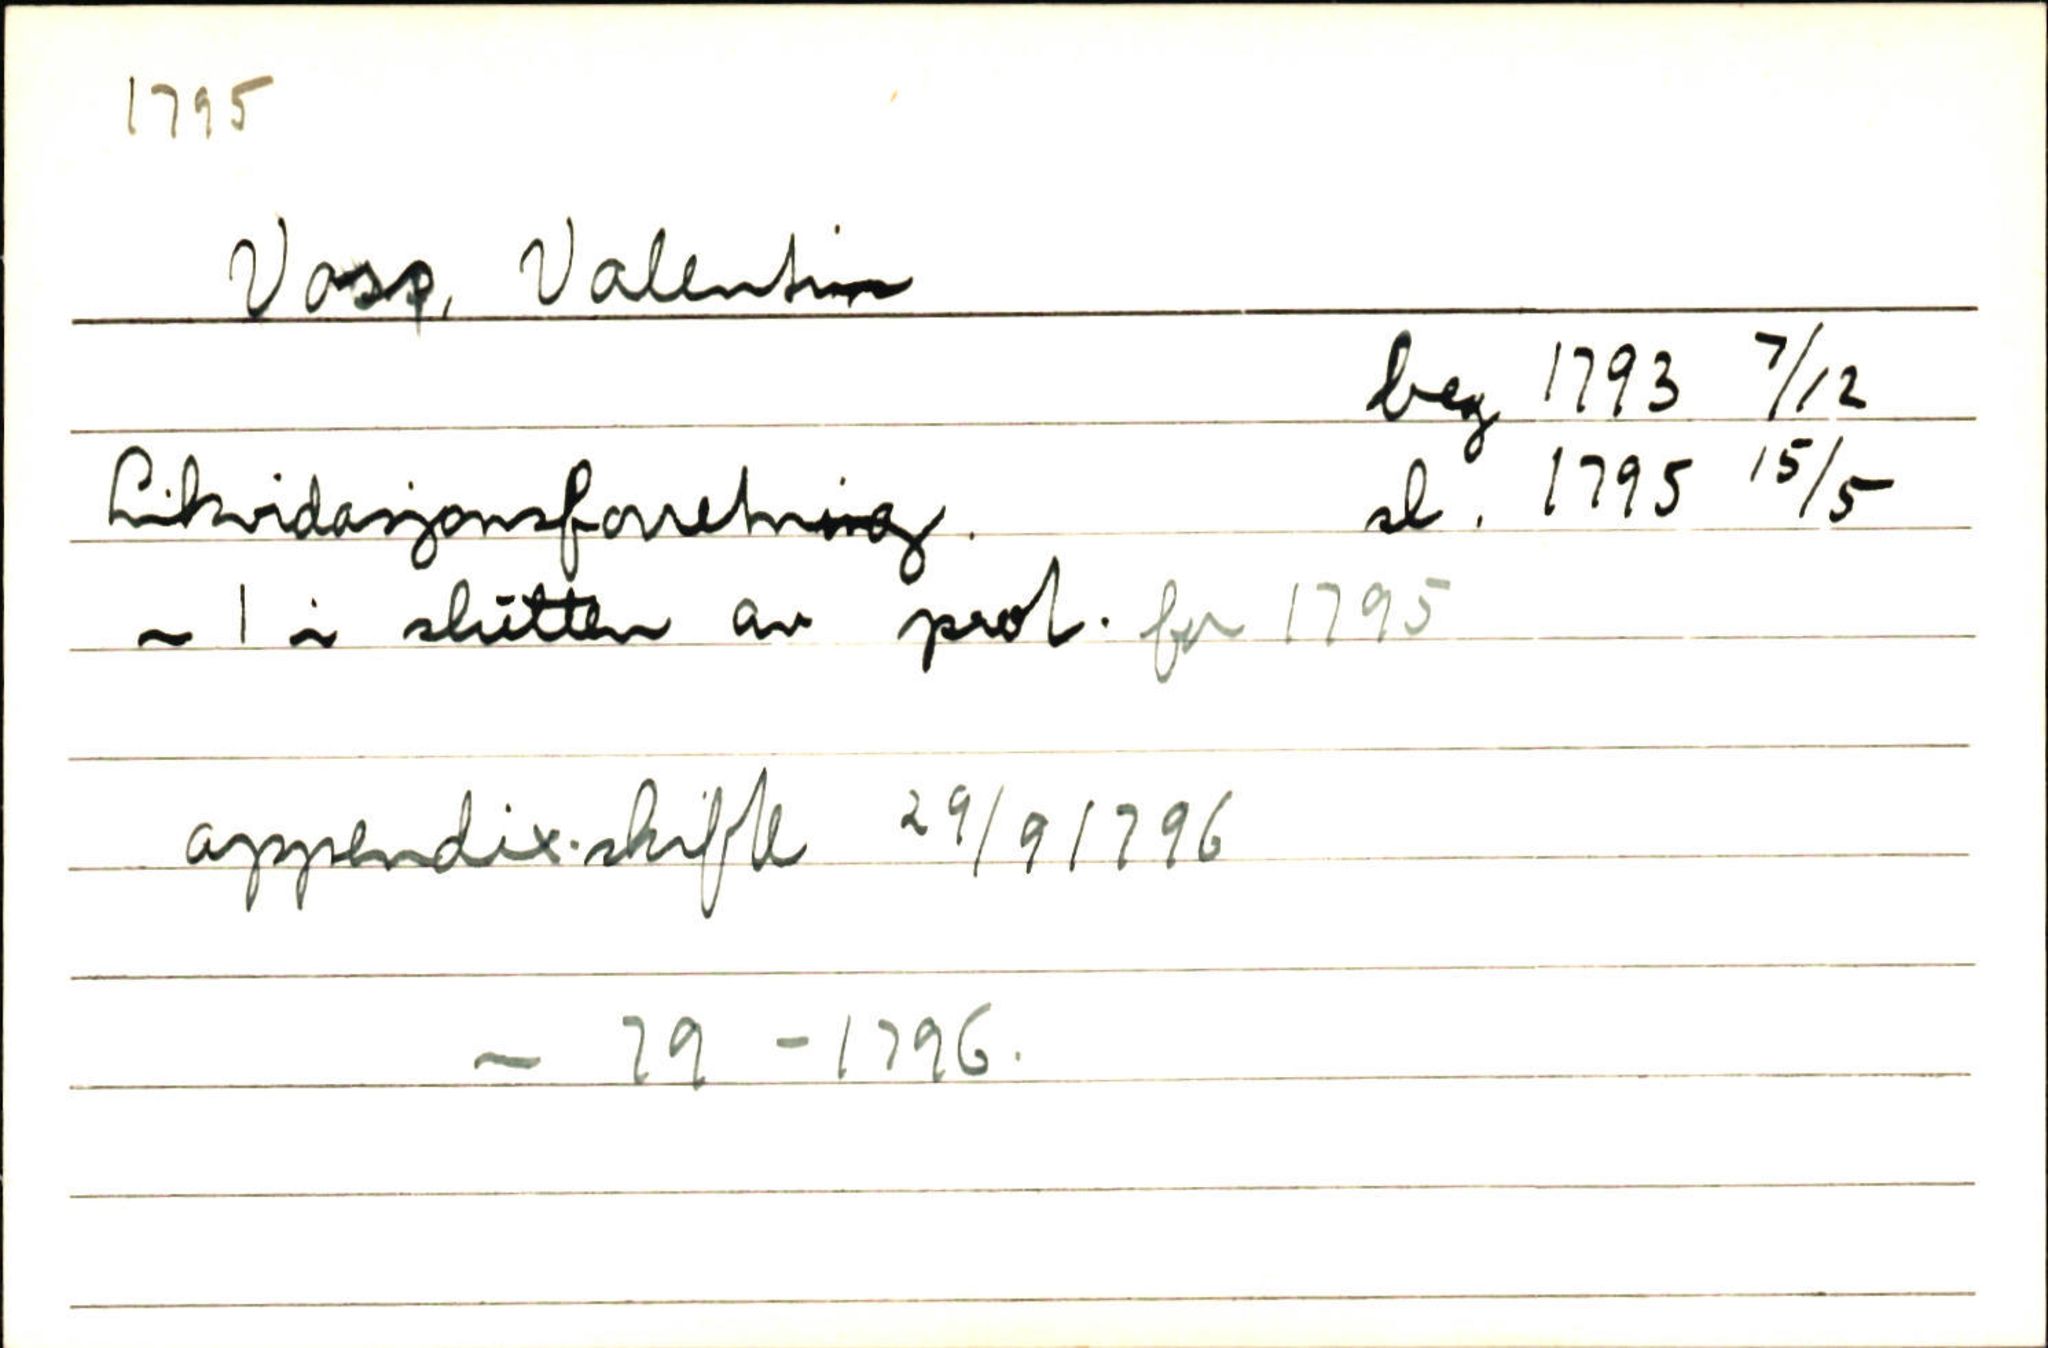 1795
Vosp, Valentin
beg 1793 7/12
Likvidasjonsforretning. sl. 1795 15/5
~ 1 i slutten av prot. for 1795
appendix-skifte 29/9 1796
~ 79 - 1796.